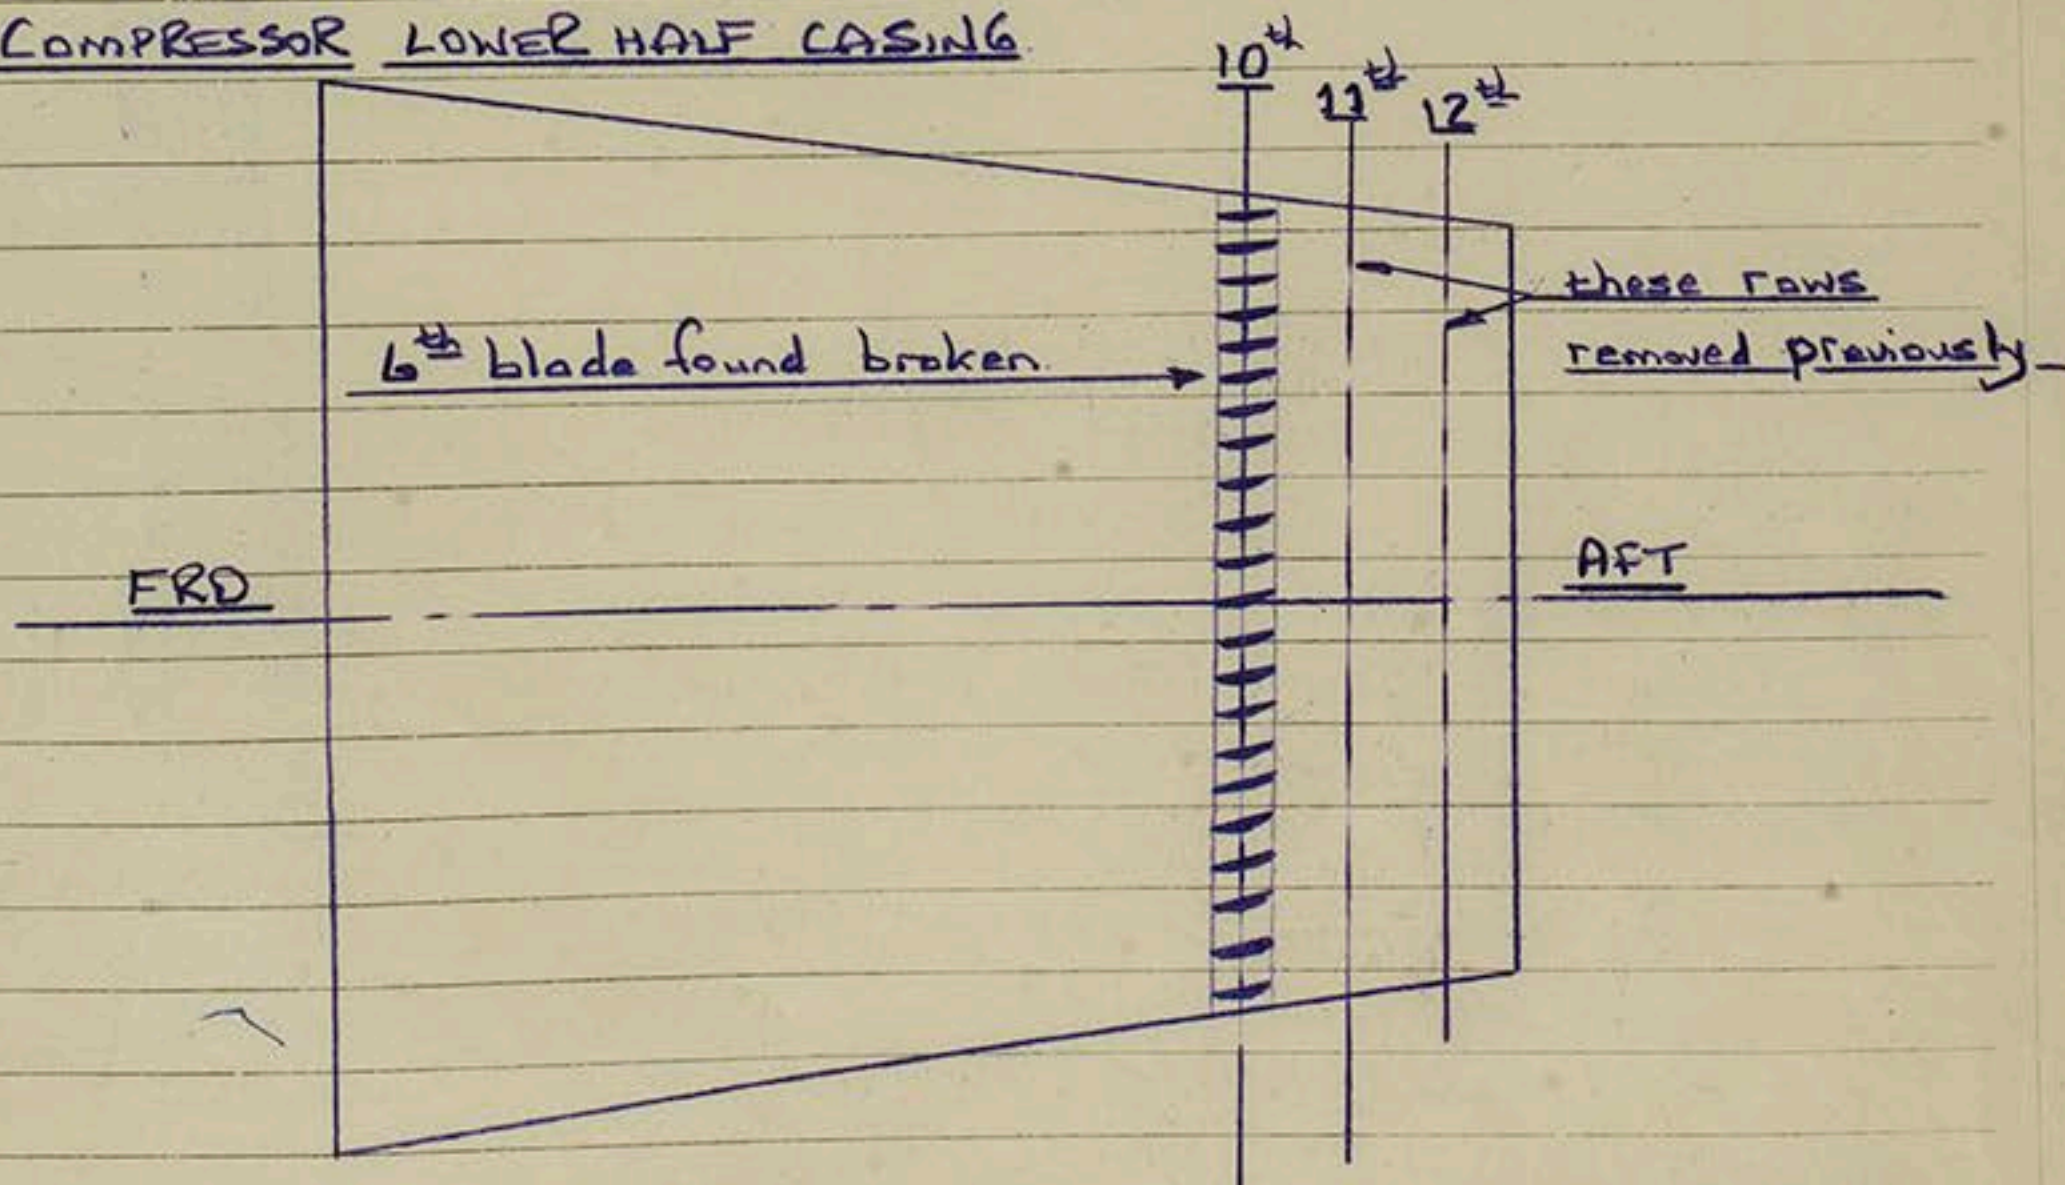 COMPRESSOR LOWER HALF CASING.
10th
11th
12th
these rows
removed previously
6th blade found broken.
FRD
AFT